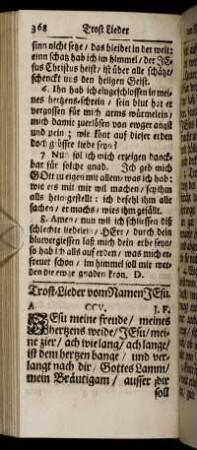 368 Trost Lieder
sinn nicht setze / das bleibet in der welt:
einn schatz hab ich im himmel / der JE-
sus Christus heist / ist über alle schätze /
schenckt uns den heilgen Geist.
6. Ihn hab ich eingeschlossen in mei-
nes hertzens-schrein / sein blut hat er
vergossen für mich arms würmelein /
mich damit zuerlösen von ewger angst
und pein ; wie kont auf dieser erden
doch grössre liebe seyn?
7. Nun soll ich mich erzeigen danck-
bar für solche gnad. Ich geb mich
GOtt zu eigen mit allem / was ich hab :
wie ers mit mir wil machen / sey ihm
alls heimgestellt : ich befehl ihm alle
sachen / er machs / wies ihm gefällt.
8. Amen / nun wil ich schliessen diß
schlechte liedelein: HErr / durch dein
blutvergiessen laß mich dein erbe seyn /
so hab ich alls auf erden / was mich er-
freuet schon / im himmel soll mir wer-
den die ewge gnaden kron. D.
Trost-Lieder vom Namen JEsu.
A. CCV. J. F.
JEsu meine freude / meines
hertzens weide / JEsu / mei-
ne zier / ach wie lang / ach lange /
ist dem hertzen bange / und ver-
langt nach dir / Gottes Lamm /
mein Bräutigam / ausser dir
soll